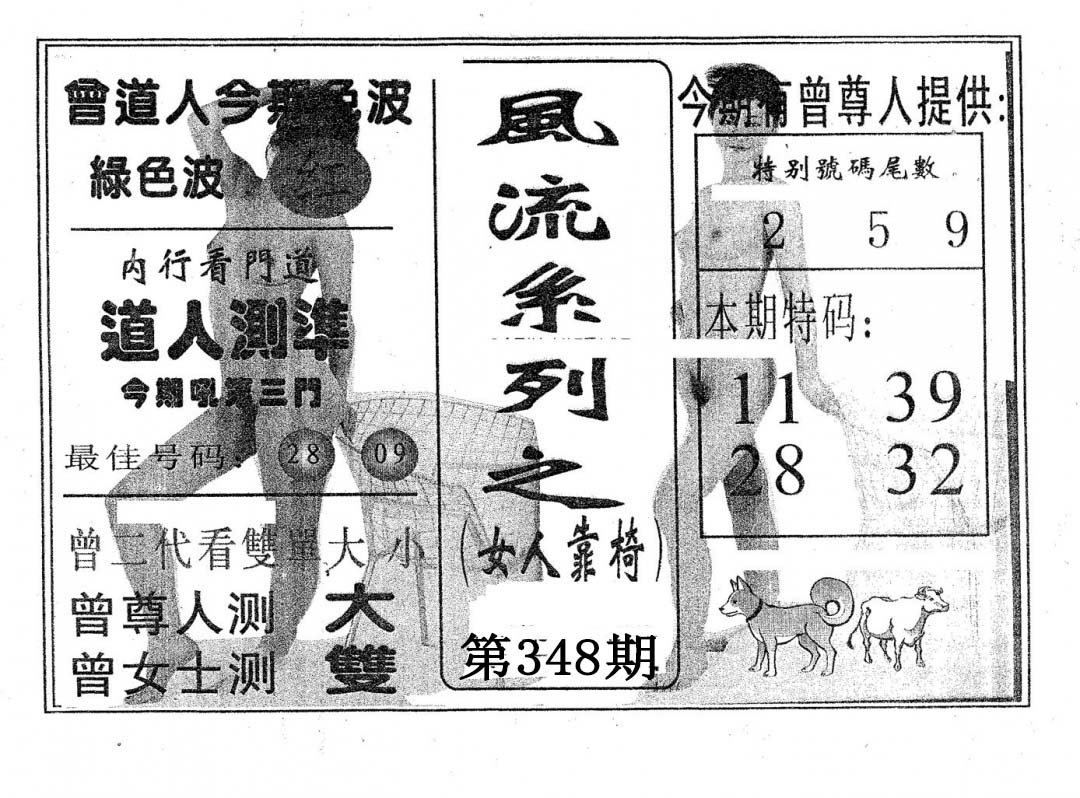 曾道人今期色波
綠色波 红
内行看門道
道人測準
今期吼準三門
最佳号码: 28 09
曾二代看雙單大小
曾尊人测 大
曾女士测 雙
風流系列之
(女人靠椅)
第348期
今期有曾尊人提供:
特别號碼尾數
2 5 9
本期特码:
11 39
28 32